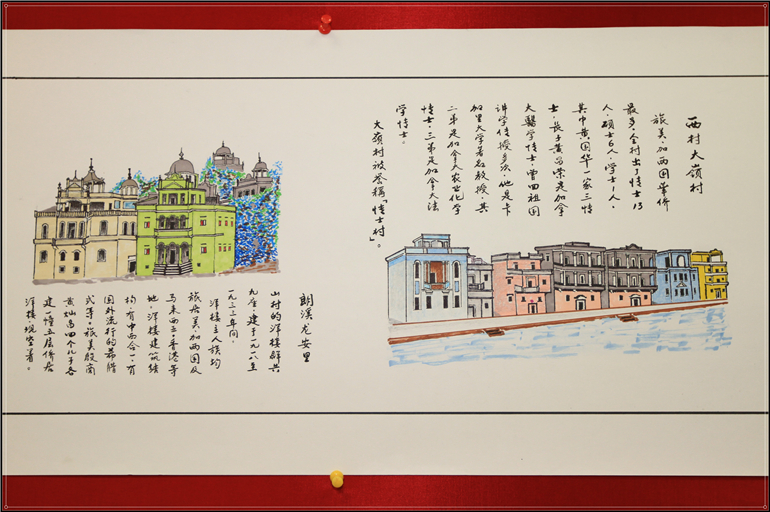 西村大嶺村
旅美、加两国华侨
最多,全村出了博士13
人,硕士6人,学士1人,
其中黄国华一家三博
士,长子黄昌荣是加拿
大醫学博士,曾回祖国
讲学传授多次,他是卡
加里大学著名教授,其
二弟是加拿大农业化学
博士,三弟是加拿大法
学博士。
大嶺村被誉稱「博士村」。
朗溪龙安里
山村的洋楼群共
九座建于一九一八至
一九三三年间,
洋楼主人族均
旅居美、加两国及
马来西亚、香港等
地,洋楼建筑结
构有中西合一,有
国外流行的希腊
式等,旅美殷商
黄灿为四个儿子各
建一幢五层侨居
洋楼